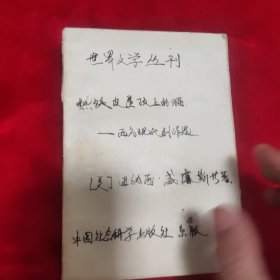 世界文学丛刊
热铁皮屋顶上的猫
——西方现代剧作选
[美]田纳西·威廉斯等著
中国社会科学出版社 出版